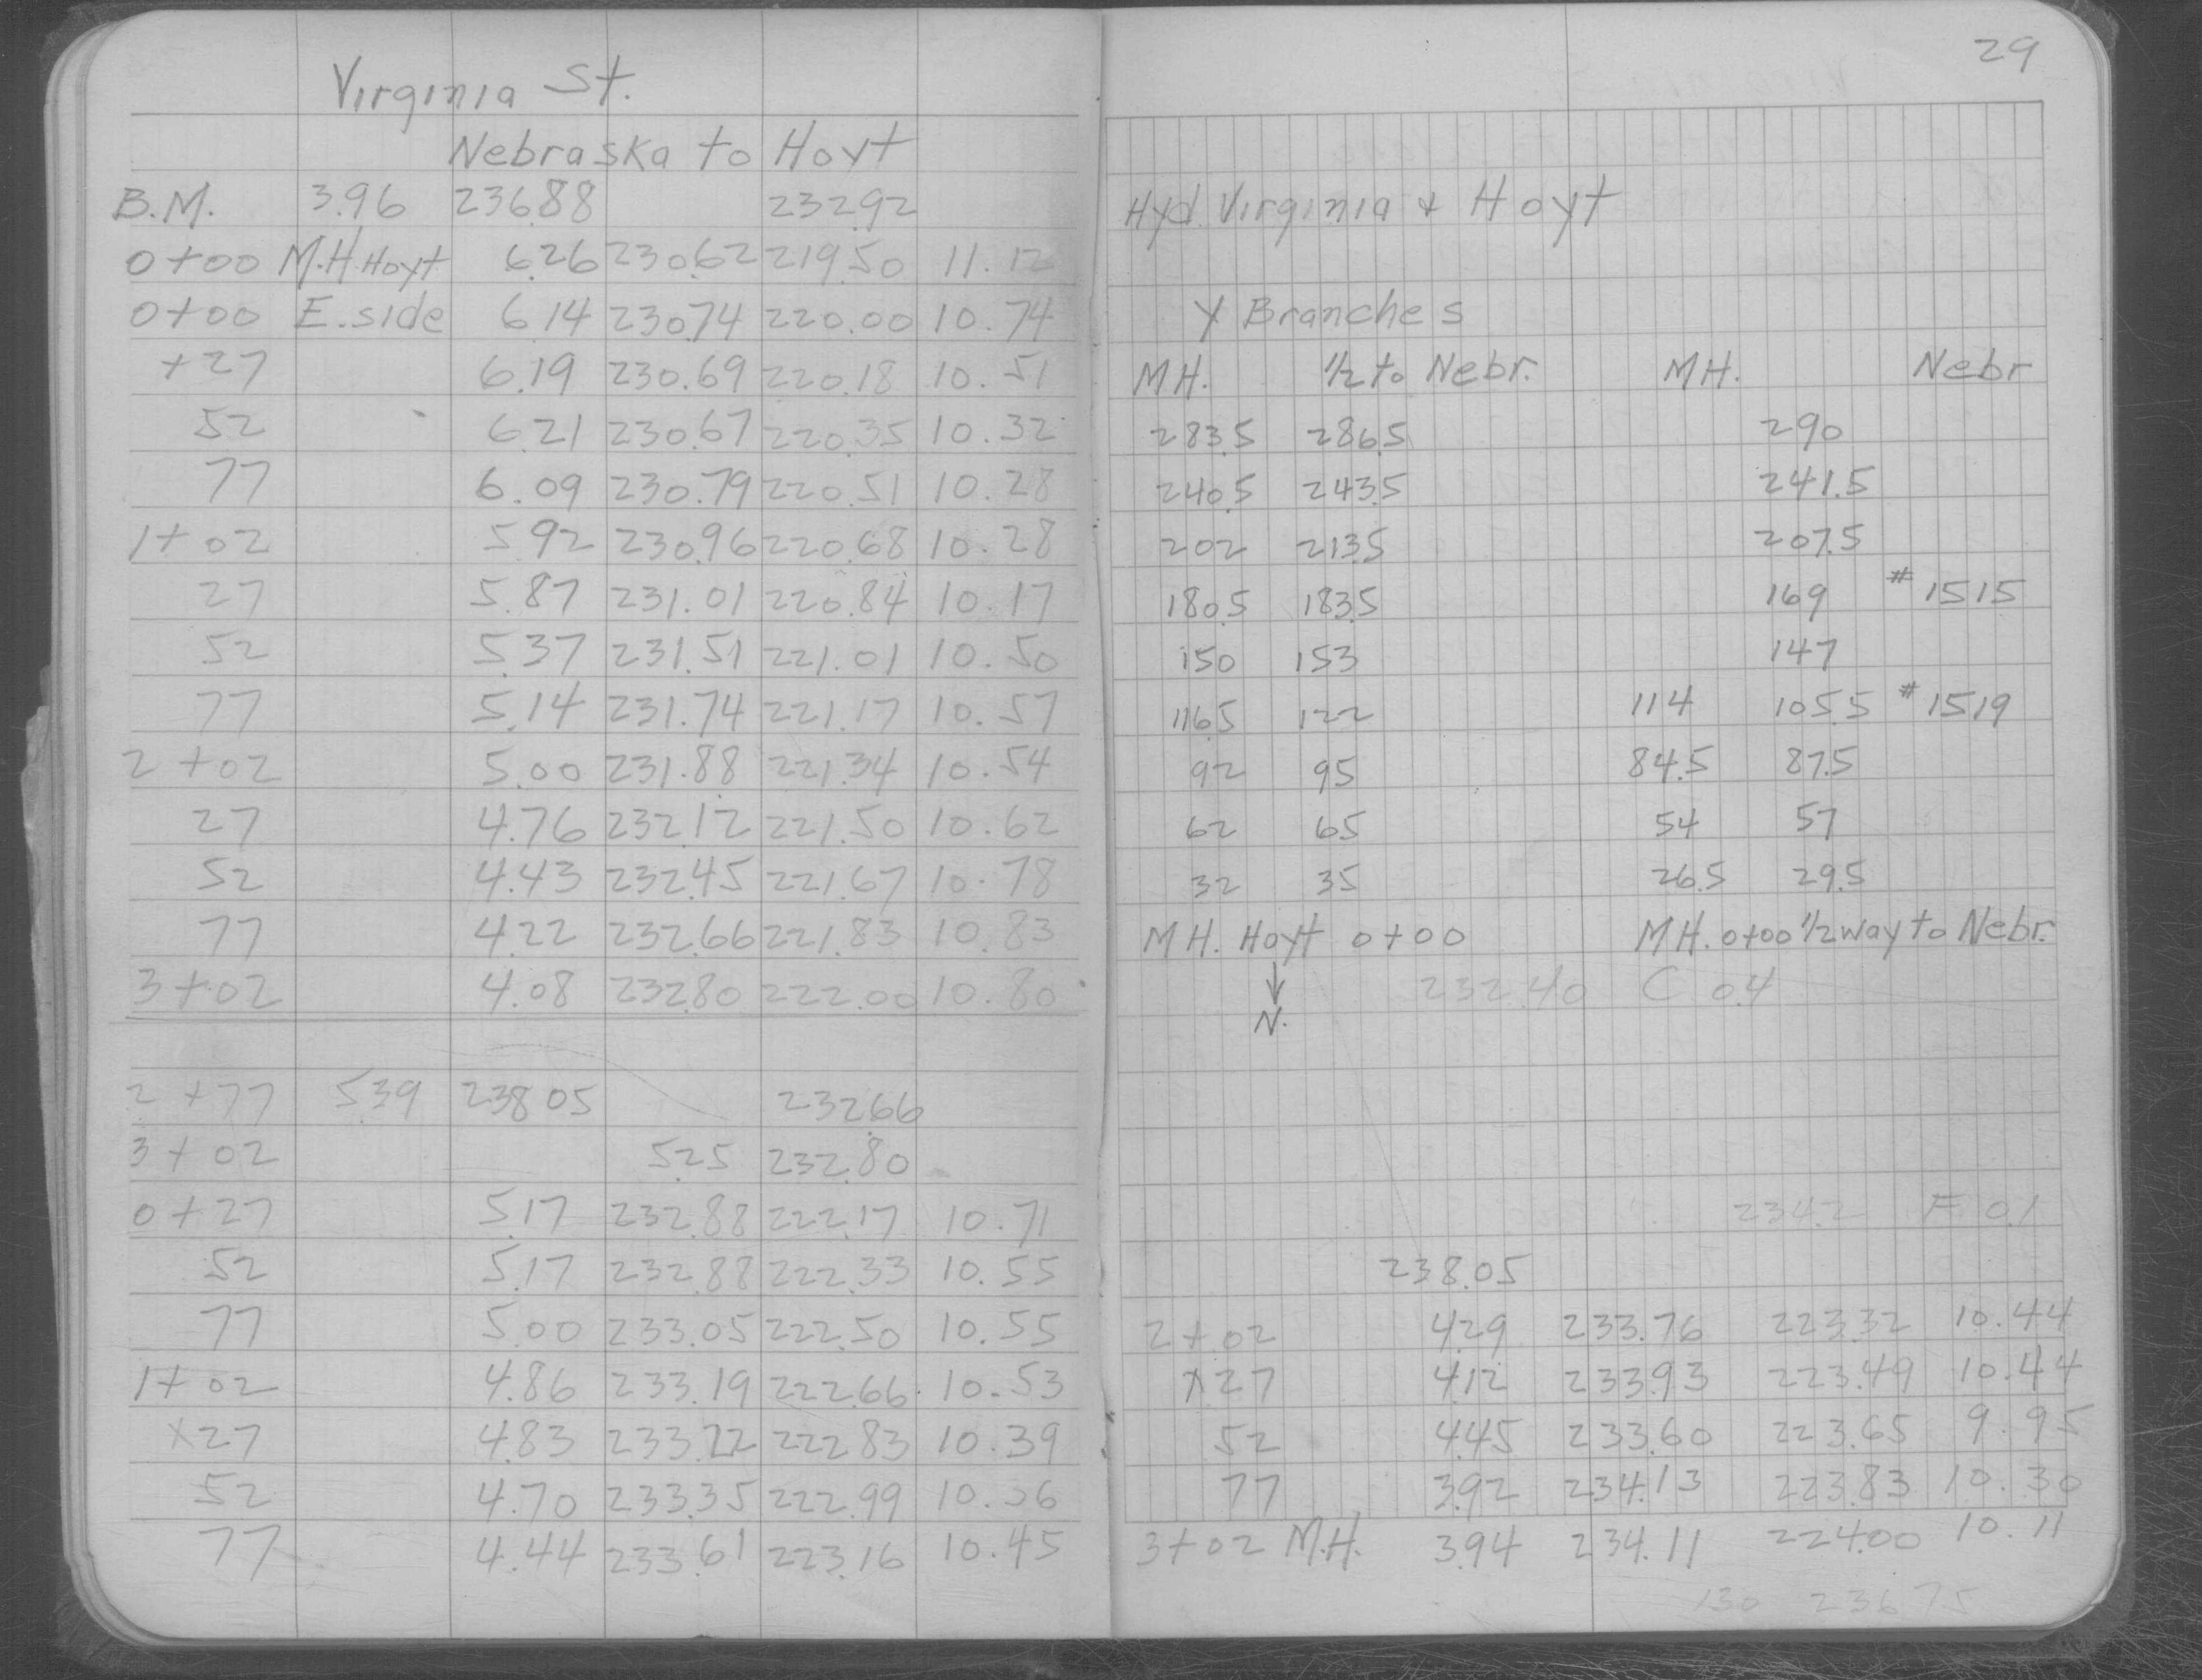 Virginia St.
Nebraska to Hoyt
B.M. 3.96 236.88 232.92
0+00 M.H. Hoyt 6.26 230.62 219.50 11.12
0+00 E. side 6.14 230.74 220.00 10.74
+27 6.19 230.69 220.18 10.51
52 6.21 230.67 220.35 10.32
77 6.09 230.79 220.51 10.28
1+02 5.92 230.96 220.68 10.28
27 5.87 231.01 220.84 10.17
52 5.37 231.51 221.01 10.50
77 5.14 231.74 221.17 10.57
2+02 5.00 231.88 221.34 10.54
27 4.76 232.12 221.50 10.62
52 4.43 232.45 221.67 10.78
77 4.22 232.66 221.83 10.83
3+02 4.08 232.80 222.00 10.80
2+77 5.39 238.05 232.66
3+02 5.25 232.80
0+27 5.17 232.88 222.17 10.71
52 5.17 232.88 222.33 10.55
77 5.00 233.05 222.50 10.55
1+02 4.86 233.19 222.66 10.53
x27 4.83 233.22 222.83 10.39
52 4.70 233.35 222.99 10.36
77 4.44 233.61 223.16 10.45
29
Hyd. Virginia + Hoyt
Y Branches
MH. 1/2 to Nebr. MH. Nebr
283.5 286.5 290
240.5 243.5 241.5
202 213.5 207.5
180.5 183.5 169 #1515
150 153 147
116.5 122 114 105.5 #1519
92 95 84.5 87.5
62 65 54 57
32 35 26.5 29.5
MH. Hoyt 0+00 MH. 0+00 1/2 way to Nebr.
↓ 232.40 C 0.4
N.
234.2 F 0.1
238.05
2+02 4.29 233.76 223.32 10.44
x27 4.12 233.93 223.49 10.44
52 4.45 233.60 223.65 9.95
77 3.92 234.13 223.83 10.30
3+02 M.H. 3.94 234.11 224.00 10.11
130 236.75